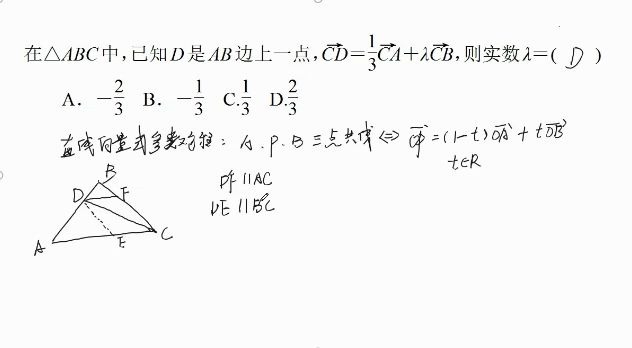 在△ABC中,已知D是AB边上一点,$\overrightarrow{CD}=\frac{1}{3}\overrightarrow{CA}+\lambda\overrightarrow{CB}$,则实数λ=( D )
A. $-\frac{2}{3}$ B. $-\frac{1}{3}$ C. $\frac{1}{3}$ D. $\frac{2}{3}$
直线向量式参数方程: A. P. B 三点共线 ⇔ $\overrightarrow{OP}=(1-t)\overrightarrow{OA}+t\overrightarrow{OB}$
t∈R
B
D F
A E C
DF∥AC
DE∥BC